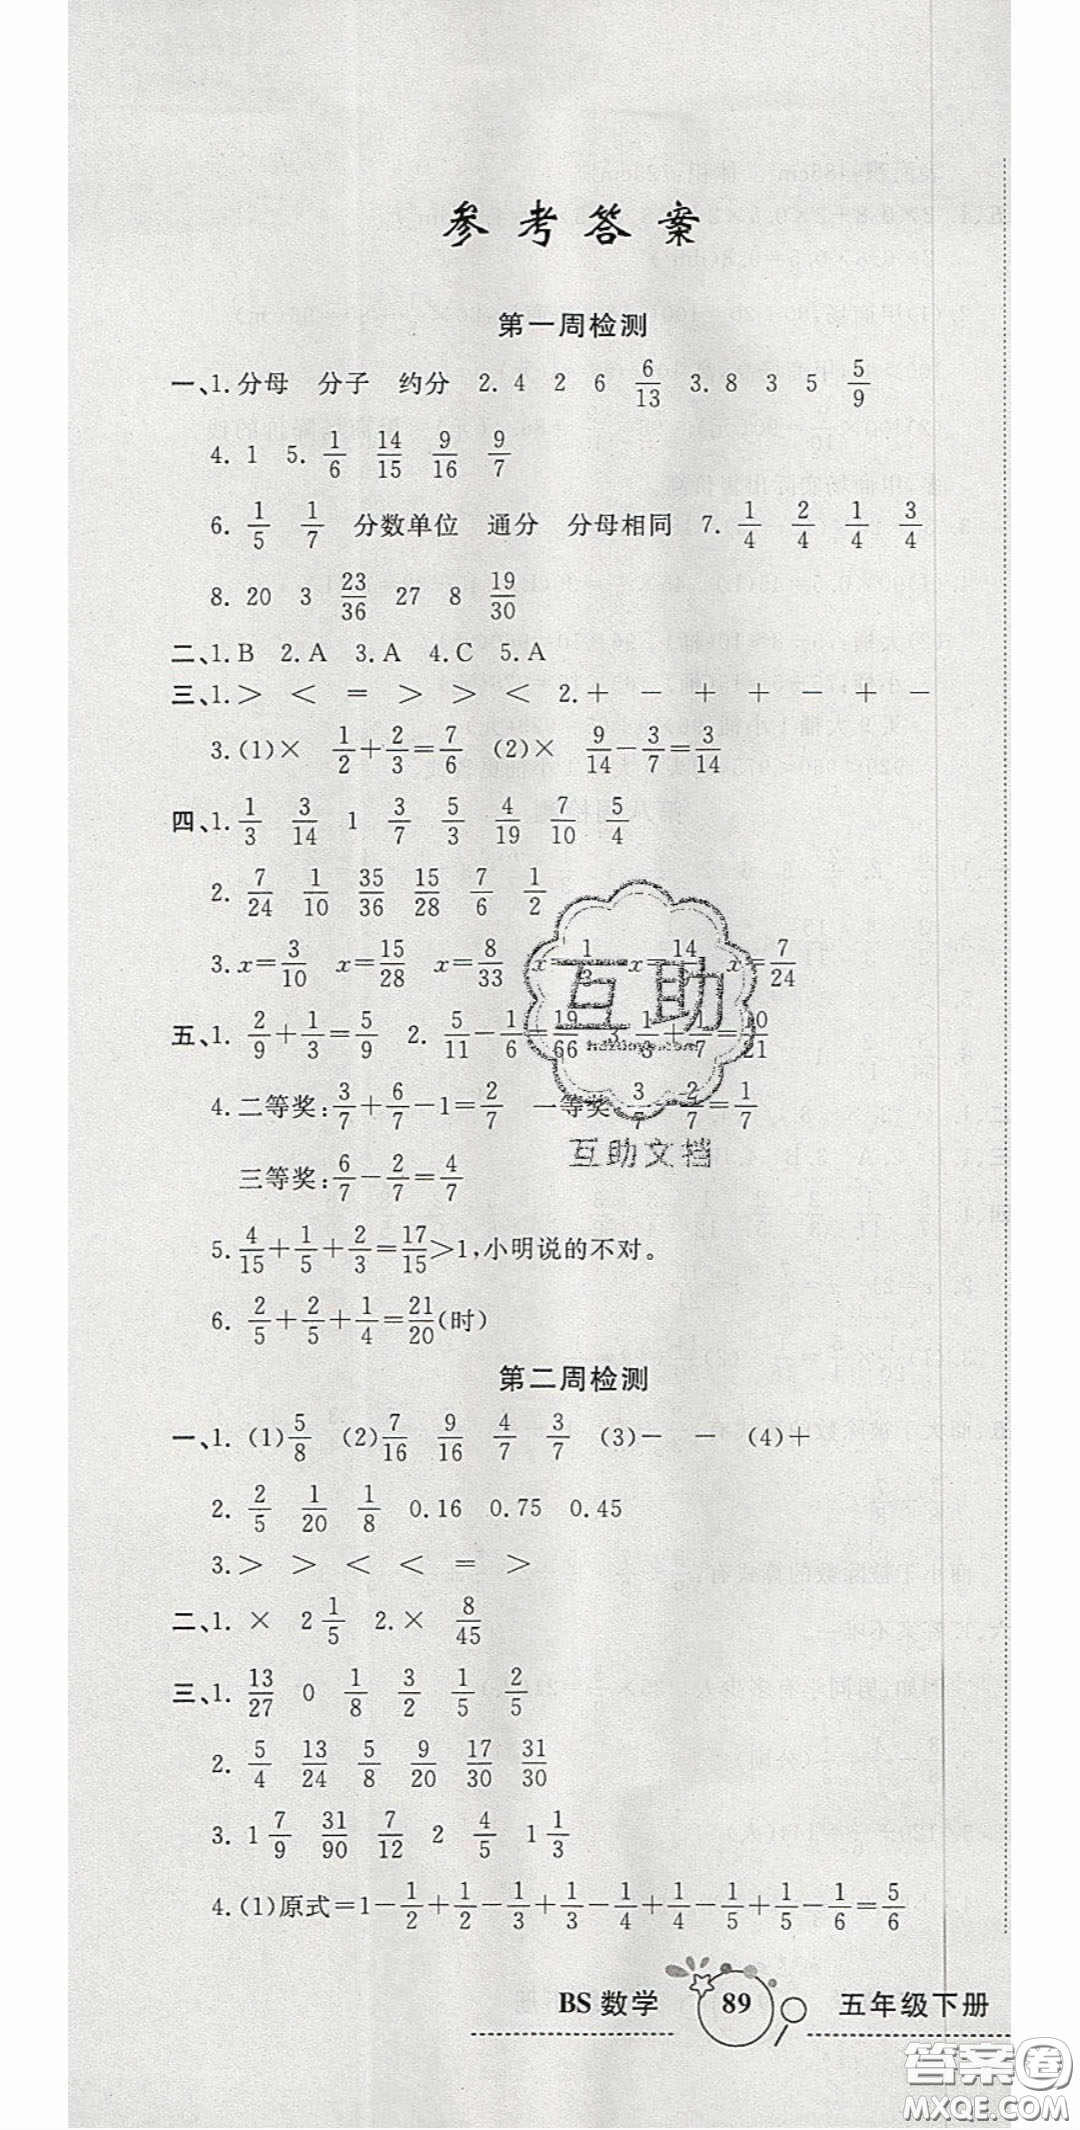 参考答案
第一周检测
一、1.分母 分子 约分 2.4 2 6 6/13 3.8 3 5 5/9
4.1 5.1/6 14/15 9/16 9/7
6.1/5 1/7 分数单位 通分 分母相同 7.1/4 2/4 1/4 3/4
8.20 3 23/36 27 8 19/30
二、1.B 2.A 3.A 4.C 5.A
三、1.> < = > > < 2.+ - + + - + -
3.(1)× 1/2+2/3=7/6 (2)× 9/14-3/7=3/14
四、1.1/3 3/14 1 3/7 5/3 4/19 7/10 5/4
2.7/24 1/10 35/36 15/28 7/6 1/2
3.x=3/10 x=15/28 x=8/33 x=1/3 x=14 x=7/24
五、1.2/9+1/3=5/9 2.5/11-1/6=19/66 3.1/3+1/7=10/21
4.二等奖:3/7+6/7-1=2/7 一等奖:3/7-2/7=1/7
三等奖:6/7-2/7=4/7
5.4/15+1/5+2/3=17/15>1,小明说的不对。
6.2/5+2/5+1/4=21/20(时)
第二周检测
一、1.(1)5/8 (2)7/16 9/16 4/7 3/7 (3)- - (4)+
2.2/5 1/20 1/8 0.16 0.75 0.45
3.> > < < = >
二、1.× 2 1/5 2.× 8/45
三、1.13/27 0 1/8 3/2 1/5 2/5
2.5/4 13/24 5/8 9/20 17/30 31/30
3.1 7/9 31/90 7/12 2 4/5 1 1/3
4.(1)原式=1-1/2+1/2-1/3+1/3-1/4+1/4-1/5+1/5-1/6=5/6
BS数学 89 五年级下册
互助
互助文档
答案卷
MXQE.COM